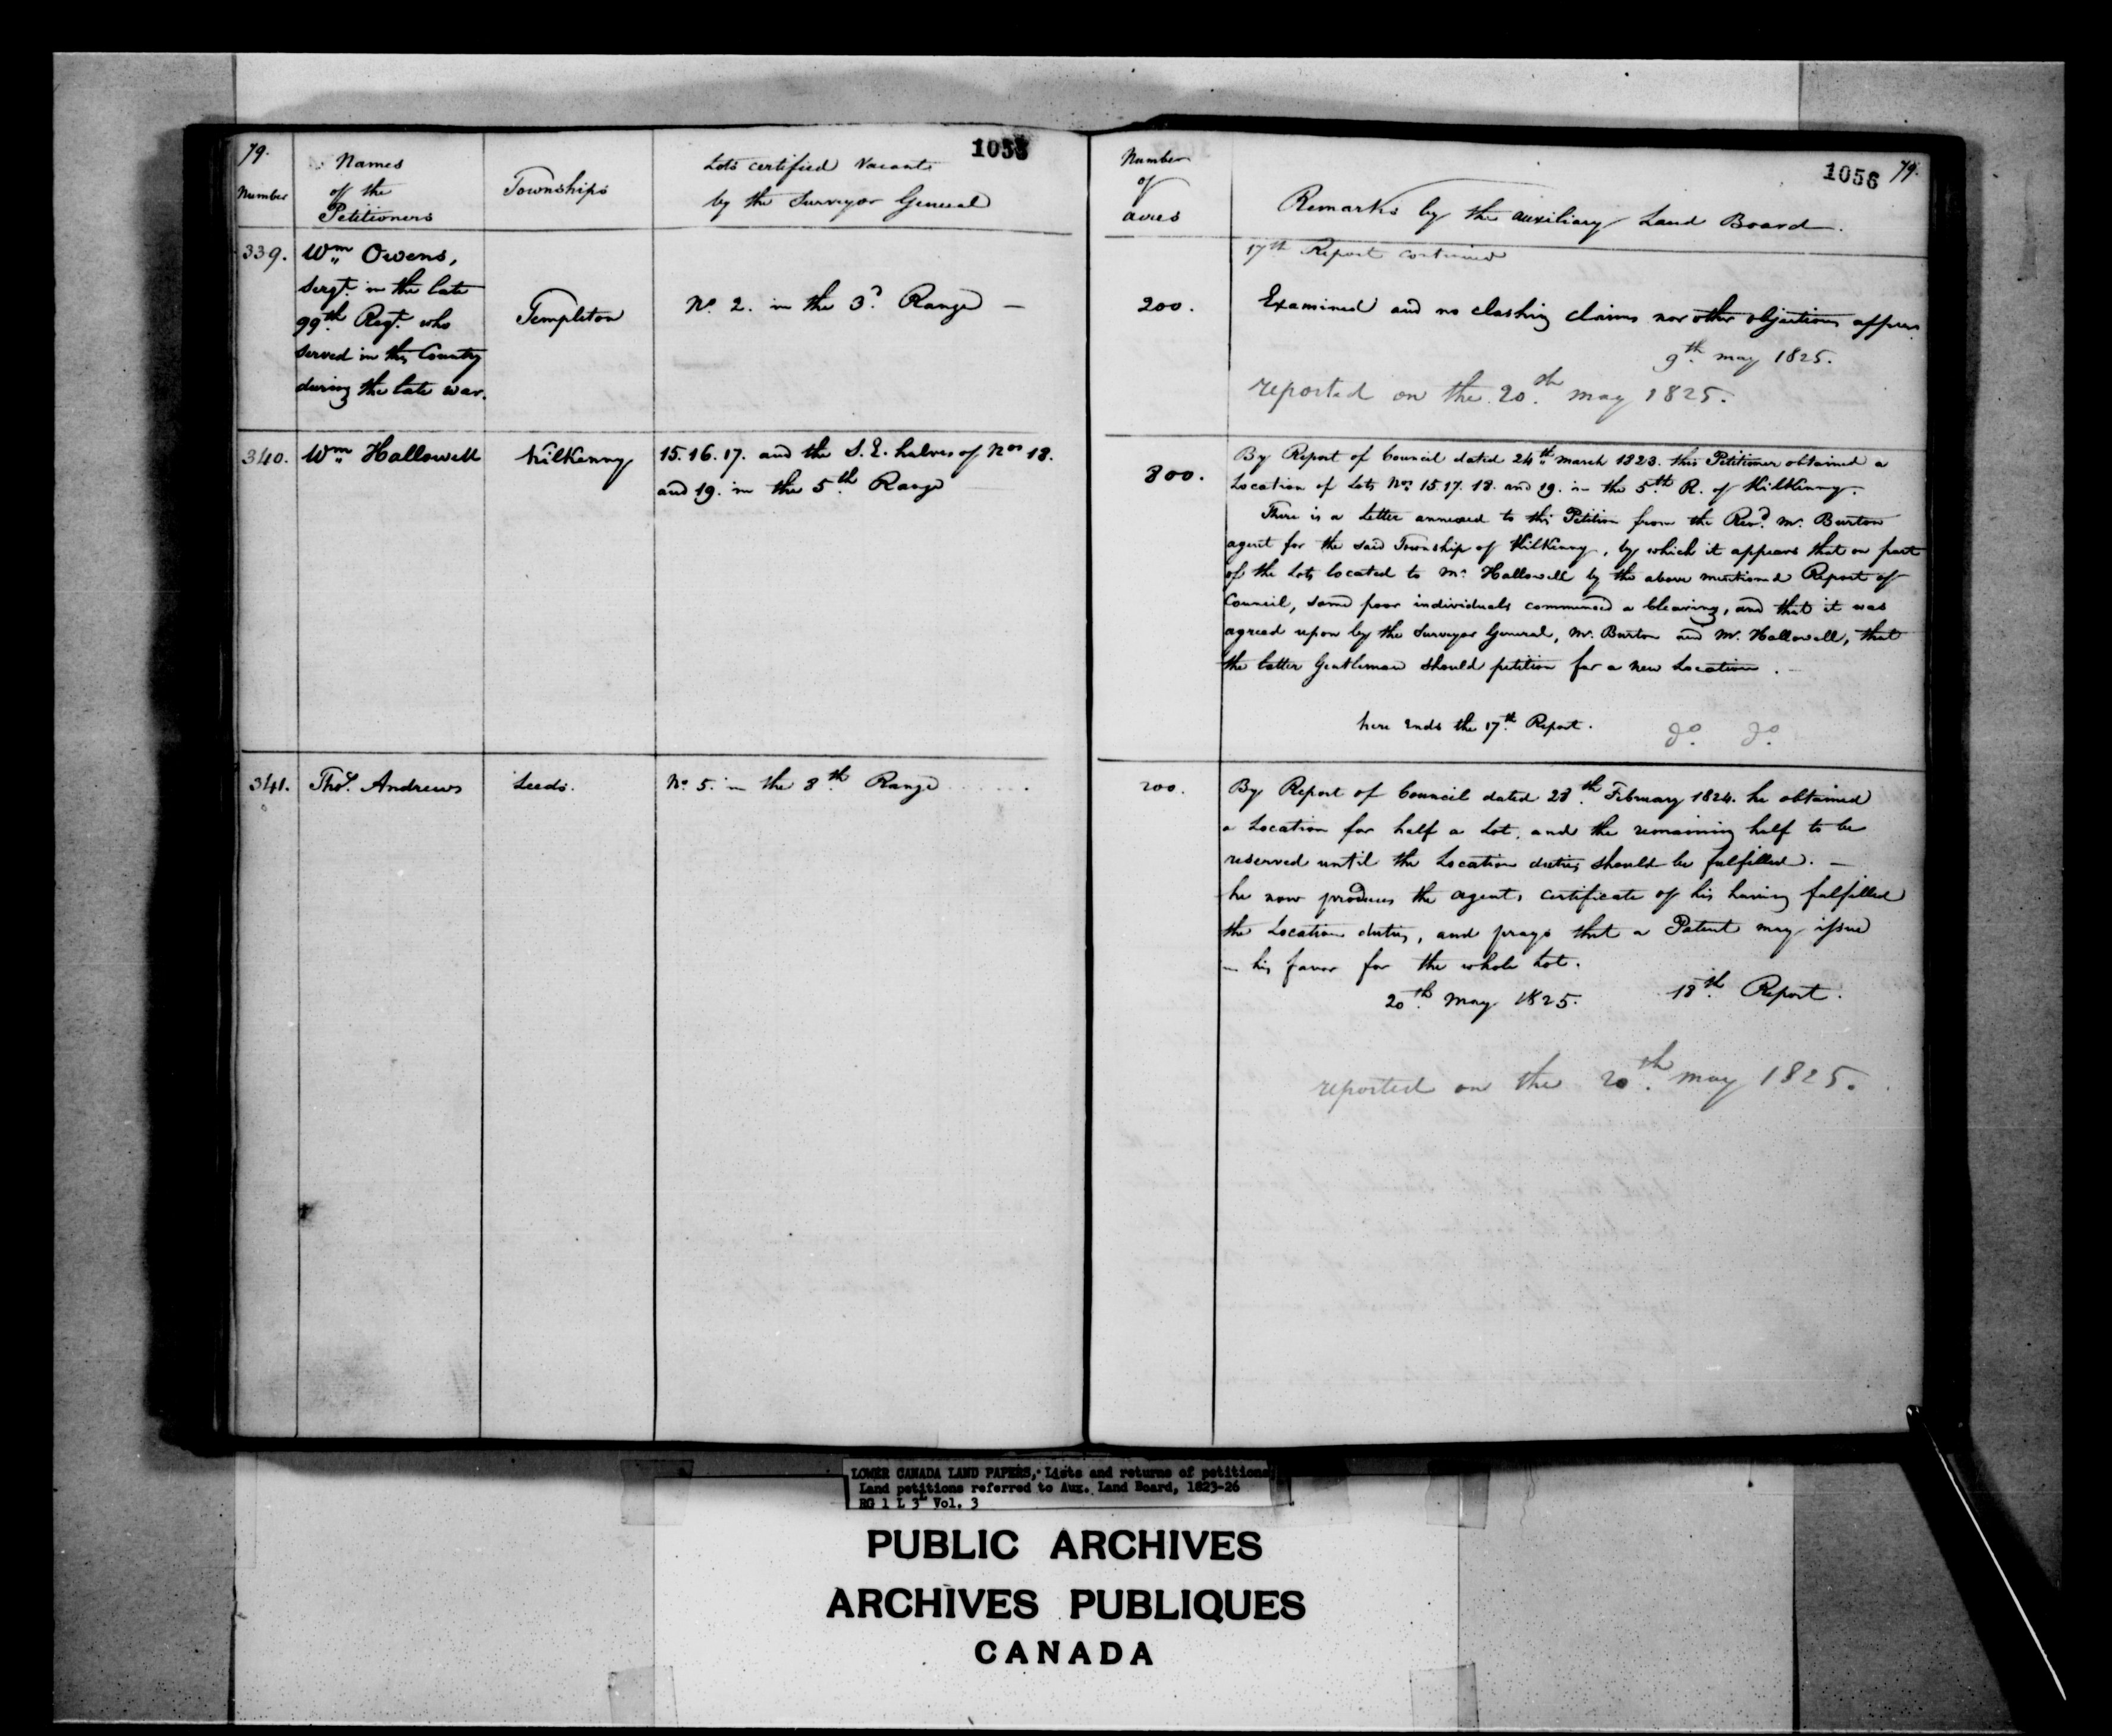 79.
1053
Number
Names
of the
Petitioners
Townships
Lots certified Vacant
by the Surveyor General
339.
Wm Owens,
Sergt. in the late
99th Regt. who
served in this Country
during the late war.
Templeton
No. 2. in the 3d. Range —
340.
Wm Hallowell
Kilkenny
15. 16. 17. and the S. E. halves of Nos 18.
and 19. in the 5th Range
341.
Thos. Andrews
Leeds.
No. 5. in the 8th Range . . . . . .
1056 79.
Number
of
acres
Remarks by the auxiliary Land Board.
17th Report continued
200.
Examined and no clashing claims nor other objections appear.
9th may 1825.
reported on the 20th may 1825.
800.
By Report of Council dated 24th March 1823. this Petitioner obtained a
Location of Lots Nos. 15. 17. 18. and 19. in the 5th R. of Kilkenny.
There is a Letter annexed to this Petition from the Revd. Mr. Burton
agent for the said Township of Kilkenny, by which it appears that on part
of the Lots located to Mr. Hallowell by the above mentioned Report of
Council, some poor individuals commenced a Clearing, and that it was
agreed upon by the Surveyor General, Mr. Burton and Mr. Hallowell, that
the latter Gentleman should petition for a new Location. —
here Ends the 17th Report.
do. do.
200.
By Report of Council dated 28th February 1824. he obtained
a Location for half a Lot, and the remaining half to be
reserved until the Location duties should be fulfilled. —
he now produces the agents certificate of his having fulfilled
the Location duties, and prays that a Patent may issue
in his favor for the whole Lot.
20th May 1825. 18th Report.
reported on the 20th may 1825.
LOWER CANADA LAND PAPERS, Lists and returns of petitions
Land petitions referred to Aux. Land Board, 1823-26
RG 1 L 3L Vol. 3
PUBLIC ARCHIVES
ARCHIVES PUBLIQUES
CANADA